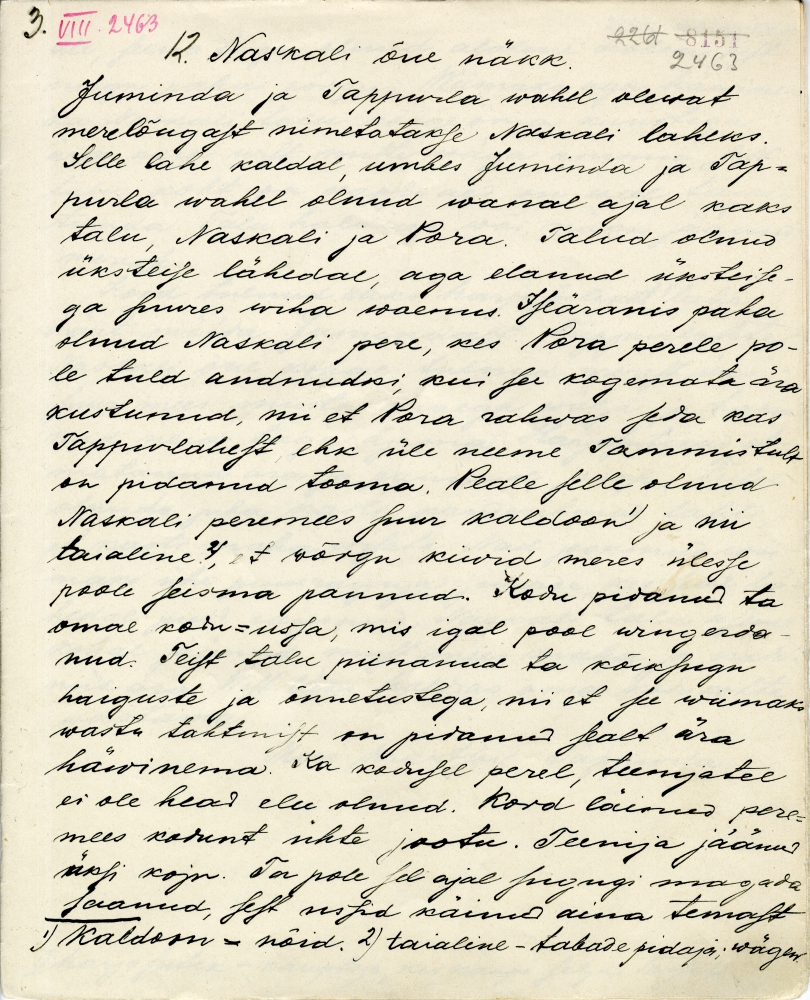 3. VIII. 2463
2261 8151
2463
12. Naskali õue näkk.
Juminda ja Tappurla wahel olewat
merelõugast nimetatakse Naskali laheks.
Selle lahe kaldal, umbes Juminda ja Tap=
purla wahel olnud wanal ajal kaks
talu, Naskali ja Pora. Talud olnud
üksteise lähedal, aga elanud üksteise-
ga suures wiha waenus. Iseäranis paha
olnud Naskali pere, kes Pora perele po-
le tuld andnudki, kui see kogemata ära
kustunud, nii et Pora rahwas seda kas
Tappurlahest, ehk üle neeme Tammistult
on pidanud tooma. Peale selle olnud
Naskali peremees suur kaldoon 1) ja nii
taialine 2), et wõrgu kiwid meres ülesse
poole seisma pannud. Kodu pidanud ta
omal kodu=ussa, mis igal pool wingerda-
nud. Teist talu piinanud ta kõiksugu
haiguste ja õnnetustega, nii et see wiimaks
wastu tahtmist on pidanud sealt ära
häwinema. Ka kodusel perel, teenijatel
ei ole head elu olnud. Kord läinud pere=
mees kodunt ühte jootu. Teenija jäänud
üksi koju. Ta pole sel ajal sugugi magada
saanud, sest ussid käinud aina temast
1) Kaldoon = nõid. 2) taialine - tabade pidaja;